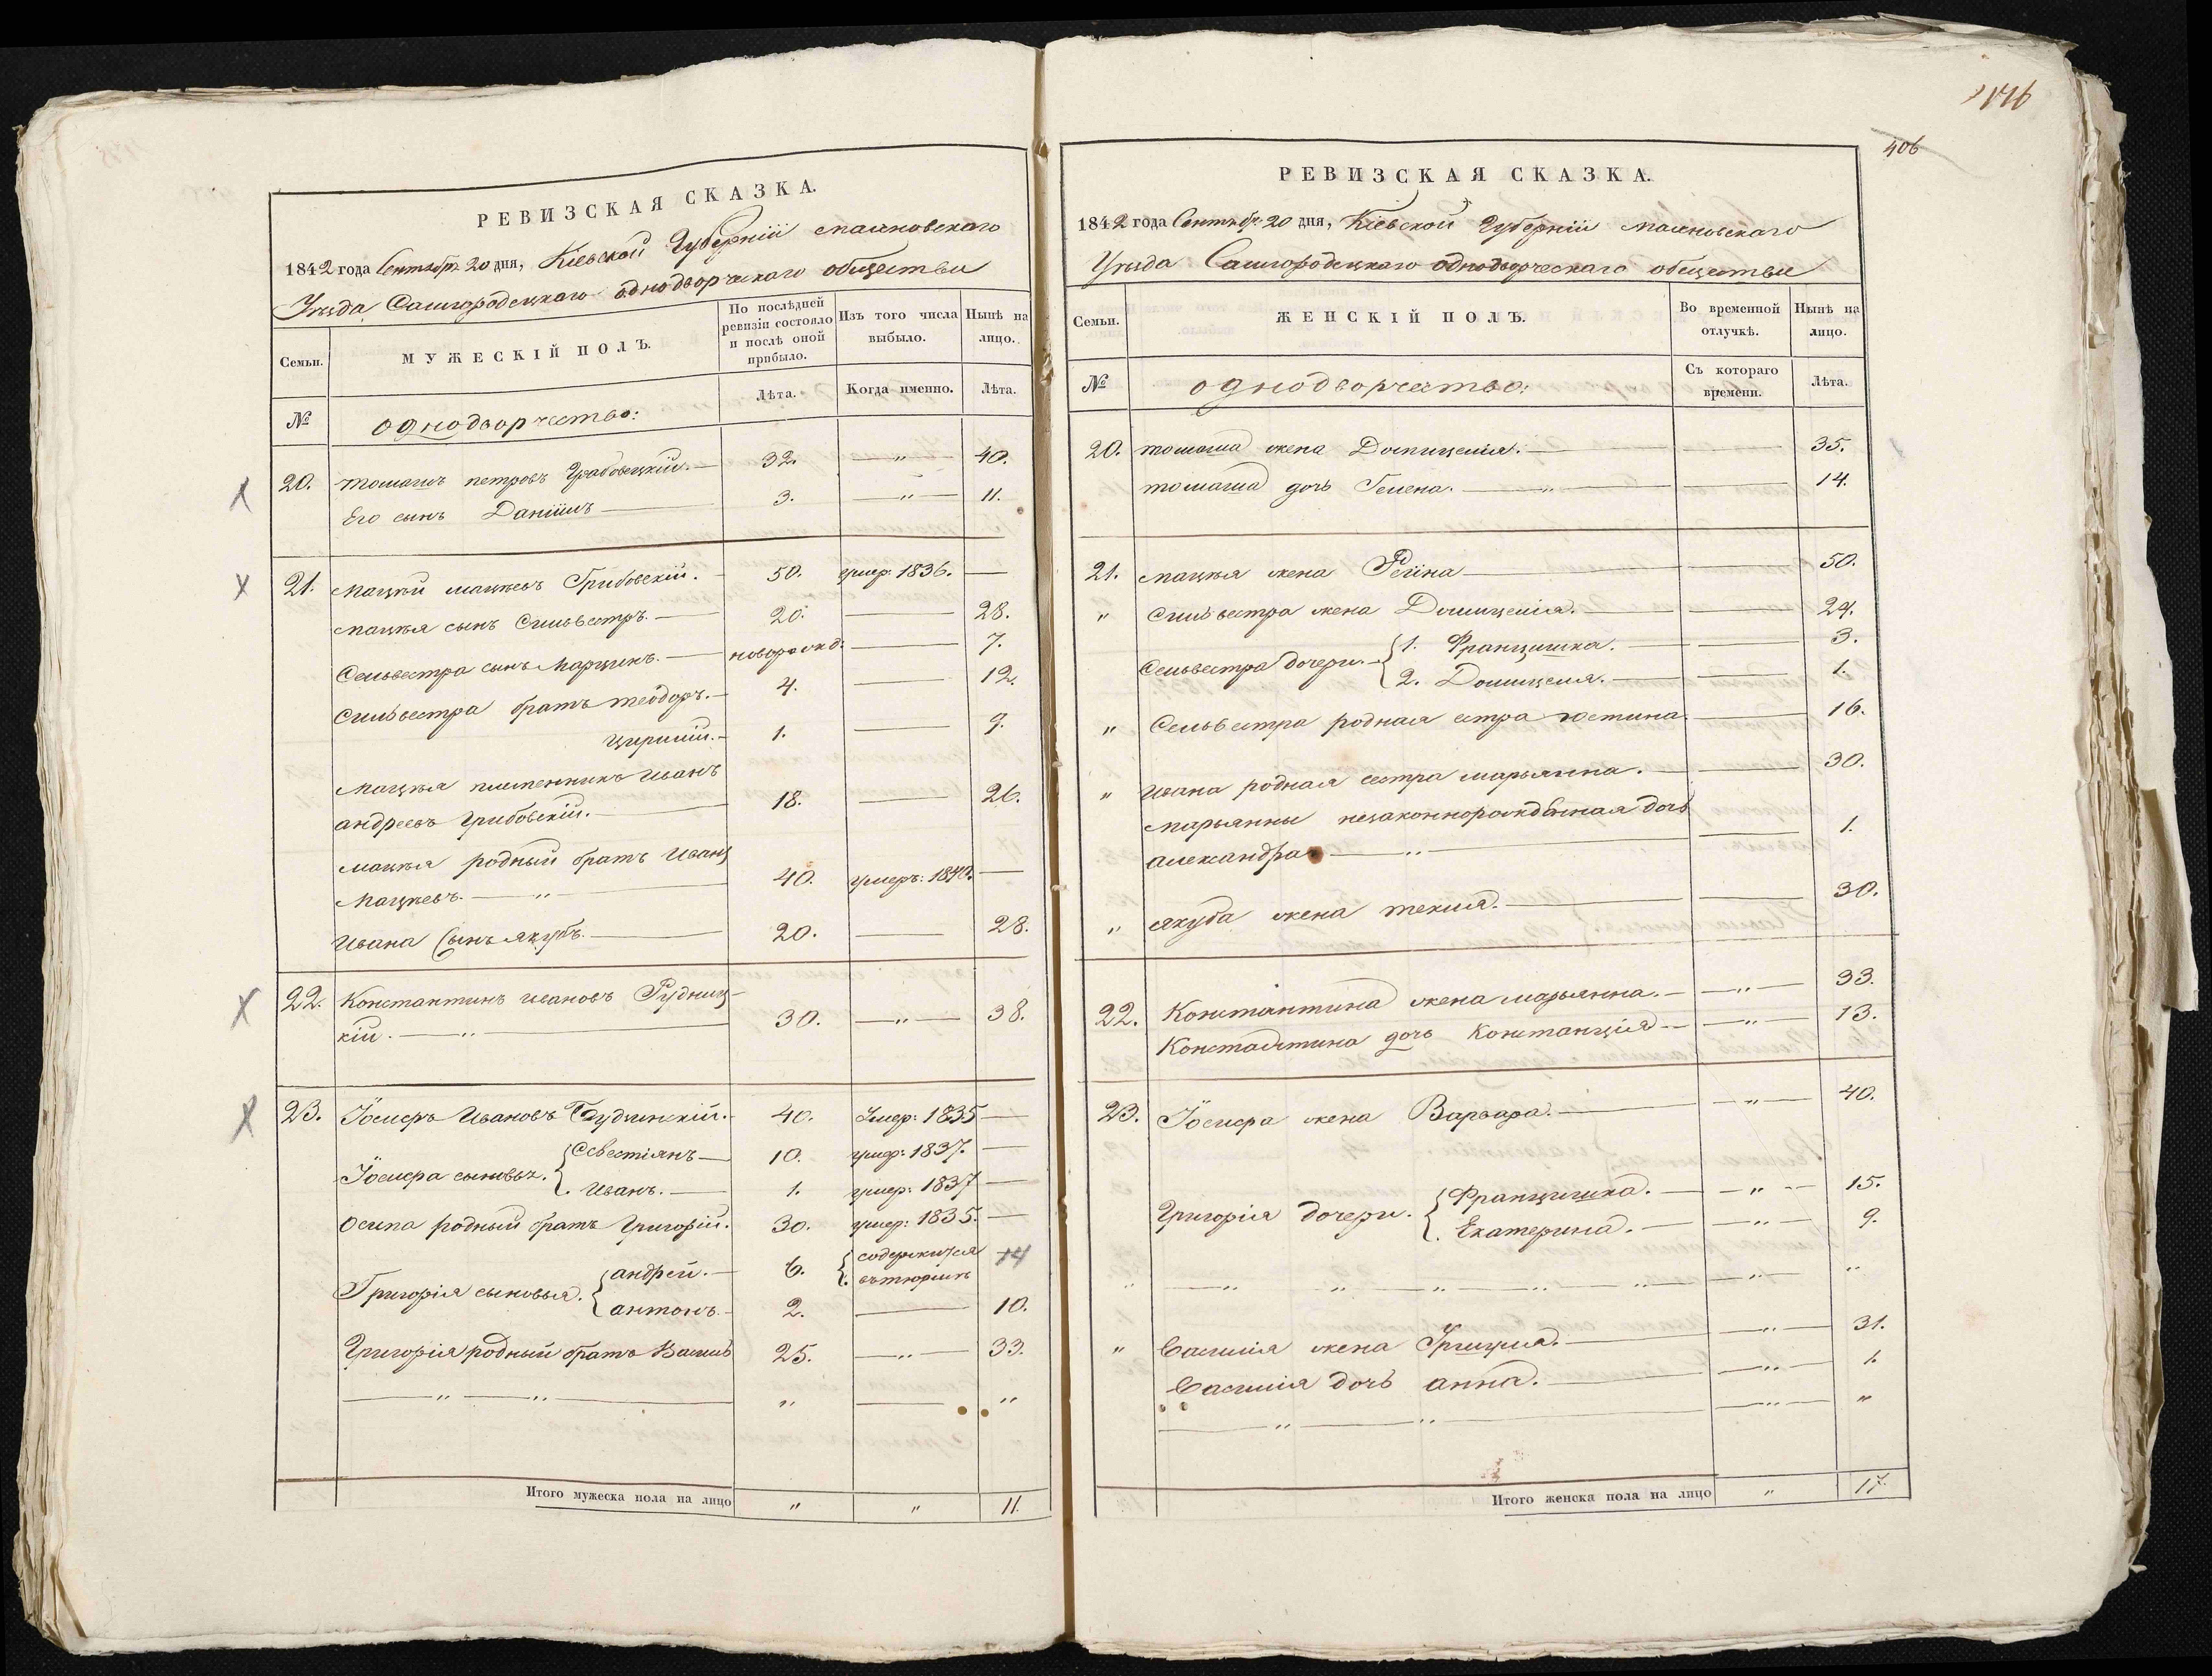 146
406
РЕВИЗСКАЯ СКАЗКА.
1842 года Сентября 20 дня, Кіевской Губерніи махновскаго
Уѣзда Самгородецкаго однодворческаго общества
Семьи.
МУЖЕСКІЙ ПОЛЪ.
По послѣдней ревизіи состояло и послѣ оной прибыло.
Изъ того числа выбыло.
Нынѣ на лицо.
№
однодворчество:
Лѣта.
Когда именно.
Лѣта.
20. томашъ петровъ Грабовецкій. 32. " 40.
Его сынъ Даніилъ 3. " 11.
21. мацѣй мацѣевъ Грибовскій. 50. умер: 1836.
мацѣя сынъ Сильвестръ. 20. 28.
Сельвестра сынъ Марцинъ. новорожд: 7.
Сильвестра братъ теодоръ. 4. 12.
1. 9.
мацѣя племенникъ Иванъ
андреевъ Грибовскій. 18. 26.
мацѣя родный братъ Иванъ
Мацѣевъ. " 40. умеръ: 1840.
Ивана Сынъ якубъ. 20. 28.
22. Константинъ ивановъ Рудниц-
кій. " 30. " 38.
23. Іосифъ Ивановъ Будзинскій. 40. Умер: 1835
Іосифа сыновья. Севестіянъ 10. умер: 1837.
Иванъ. 1. умер: 1837
Осипа родный братъ Григорій. 30. умер: 1835.
Григорія сыновья. андрей. 6. содержится 14
въ тюрьмѣ
антонъ. 2. 10.
Григорія родный братъ Василь 25. " 33.
" " " "
Итого мужеска пола на лицо " " 11.
РЕВИЗСКАЯ СКАЗКА.
1842 года Сентябр: 20 дня, Кіевской Губерніи махновскаго
Уѣзда Самгородецкаго однодворческаго общества
Семьи.
ЖЕНСКІЙ ПОЛЪ.
Во временной отлучкѣ.
Нынѣ на лицо.
№
однодворчество:
Съ котораго времени.
Лѣта.
20. томаша жена Домицелія. 35.
томаша дочь Гелена. " 14.
21. мацѣя жена Реіна 50.
" Сильвестра жена Домицелія. 29.
Сельвестра дочери. 1. Францишка. 3.
2. Домицеля. 1.
" Сельвестра родная естра юстина. 16.
" Ивана родная сестра марьянна. 30.
марьянны незаконнорожденная дочь
александра " 1.
" якуба жена текля. 30.
22. Константина жена марьянна. " 33.
Константина дочь Констанція " 13.
23. Іосифа жена Варвара. " 40.
Григорія дочери. Францишка. " 15.
Екатерина. " 9.
" " " " " " "
" Василія жена 31.
Василія дочь анна. " 1.
" " " "
Итого женска пола на лицо " 17.